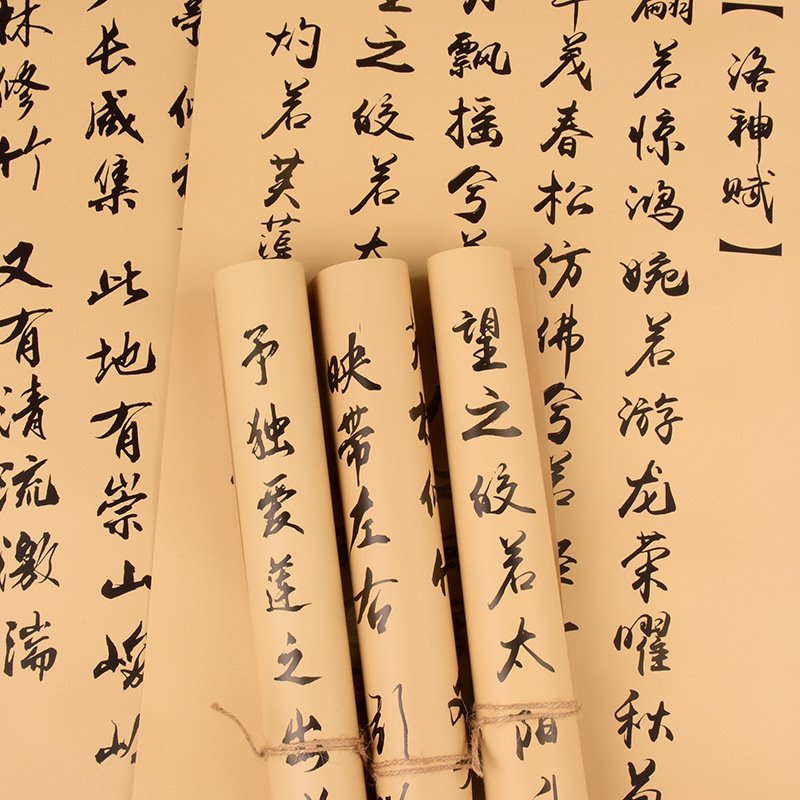 【洛神赋】
翩若惊鸿婉若游龙荣曜秋菊
华茂春松仿佛兮若
飘摇兮若
之皎若太
灼若芙
长咸集 此地有崇山峻
林修竹 又有清流激湍
望之皎若太阳升
映带左右 引
予独爱莲之出